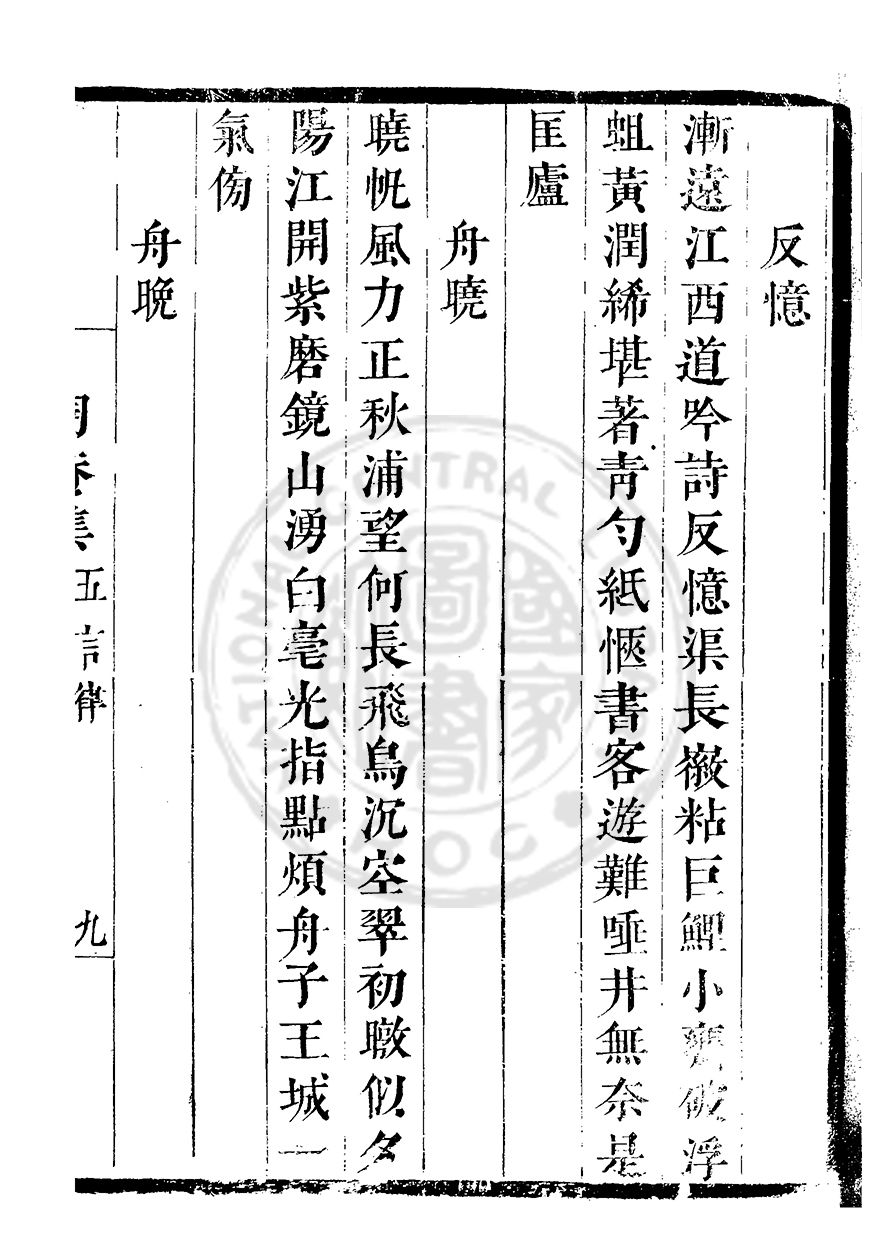 反憶
漸遠江西道吟詩反憶渠長㡡粘巨鯉小甕破浮
蛆黃潤絺堪著靑勻紙愜書客遊難唾井無奈是
匡廬
舟曉
曉帆風力正秋浦望何長飛鳥沉空翠初暾似夕
陽江開紫磨鏡山湧白毫光指點煩舟子王城一
氣傍
舟晩
集五言律
九